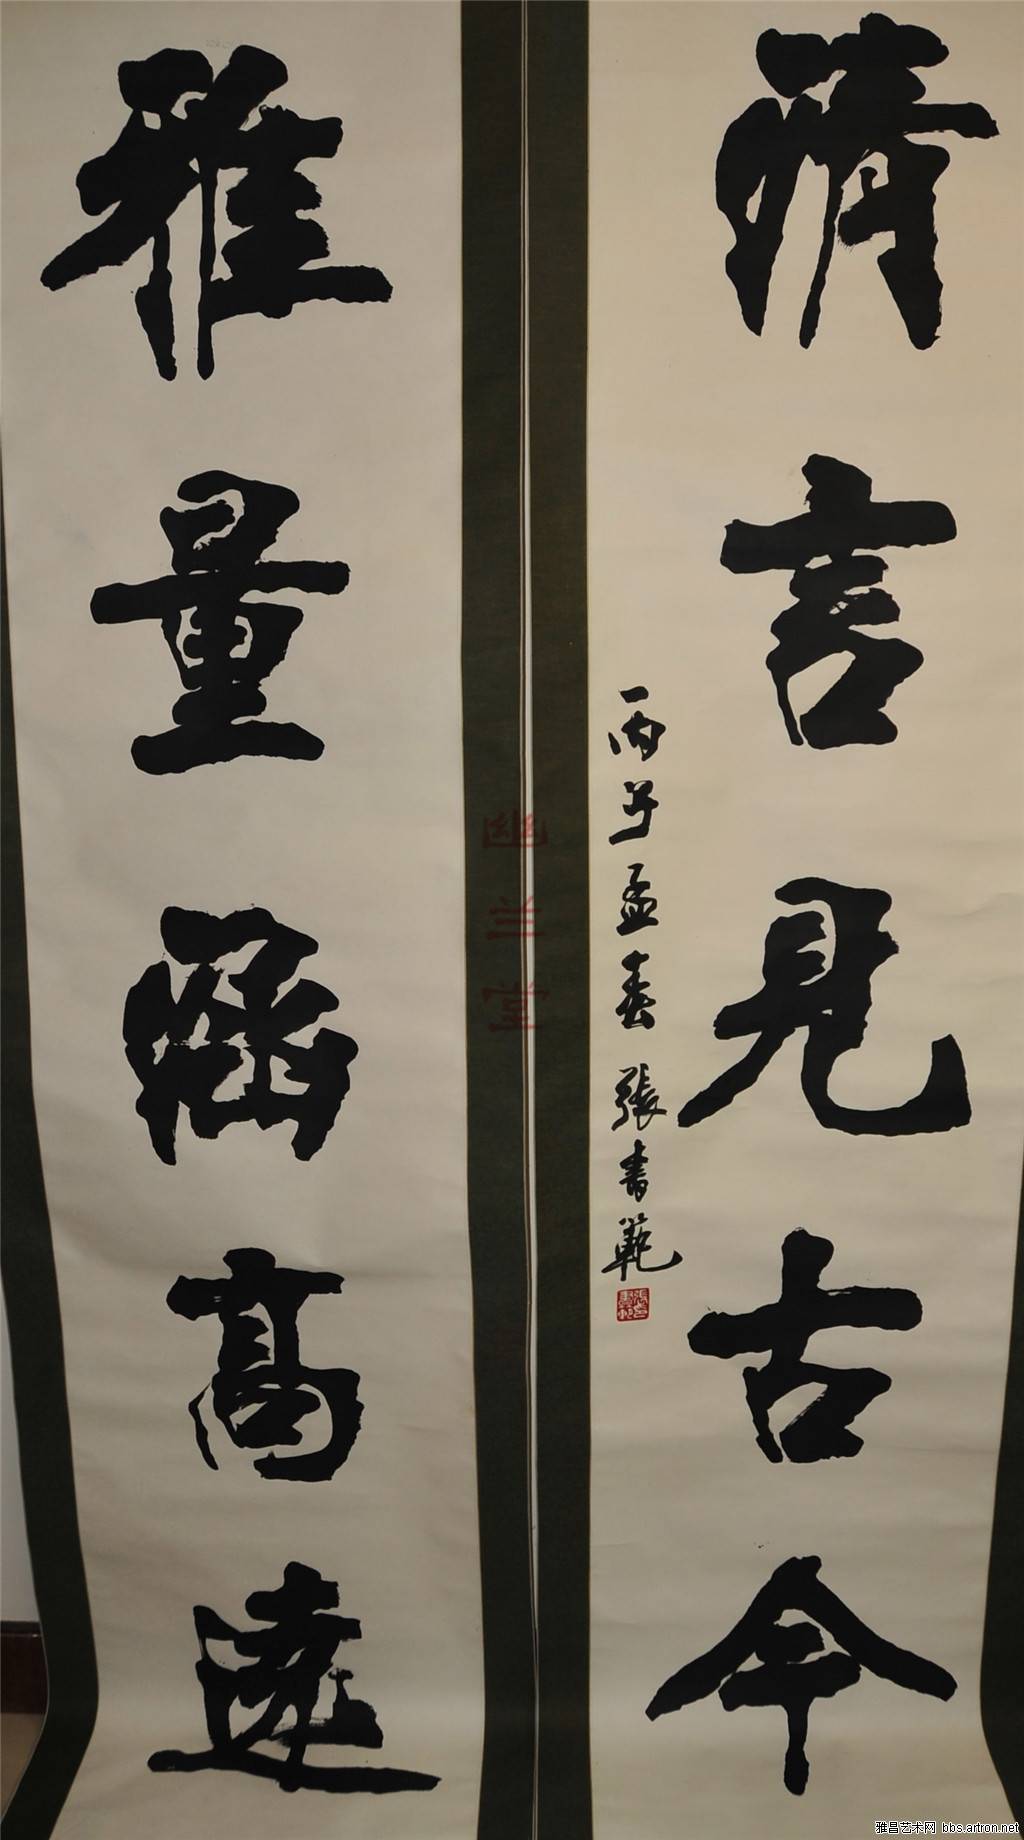 清言見古今
丙子孟春 張書範
雅量涵高遠
幽兰堂
雅昌艺术网 bbs.artron.net